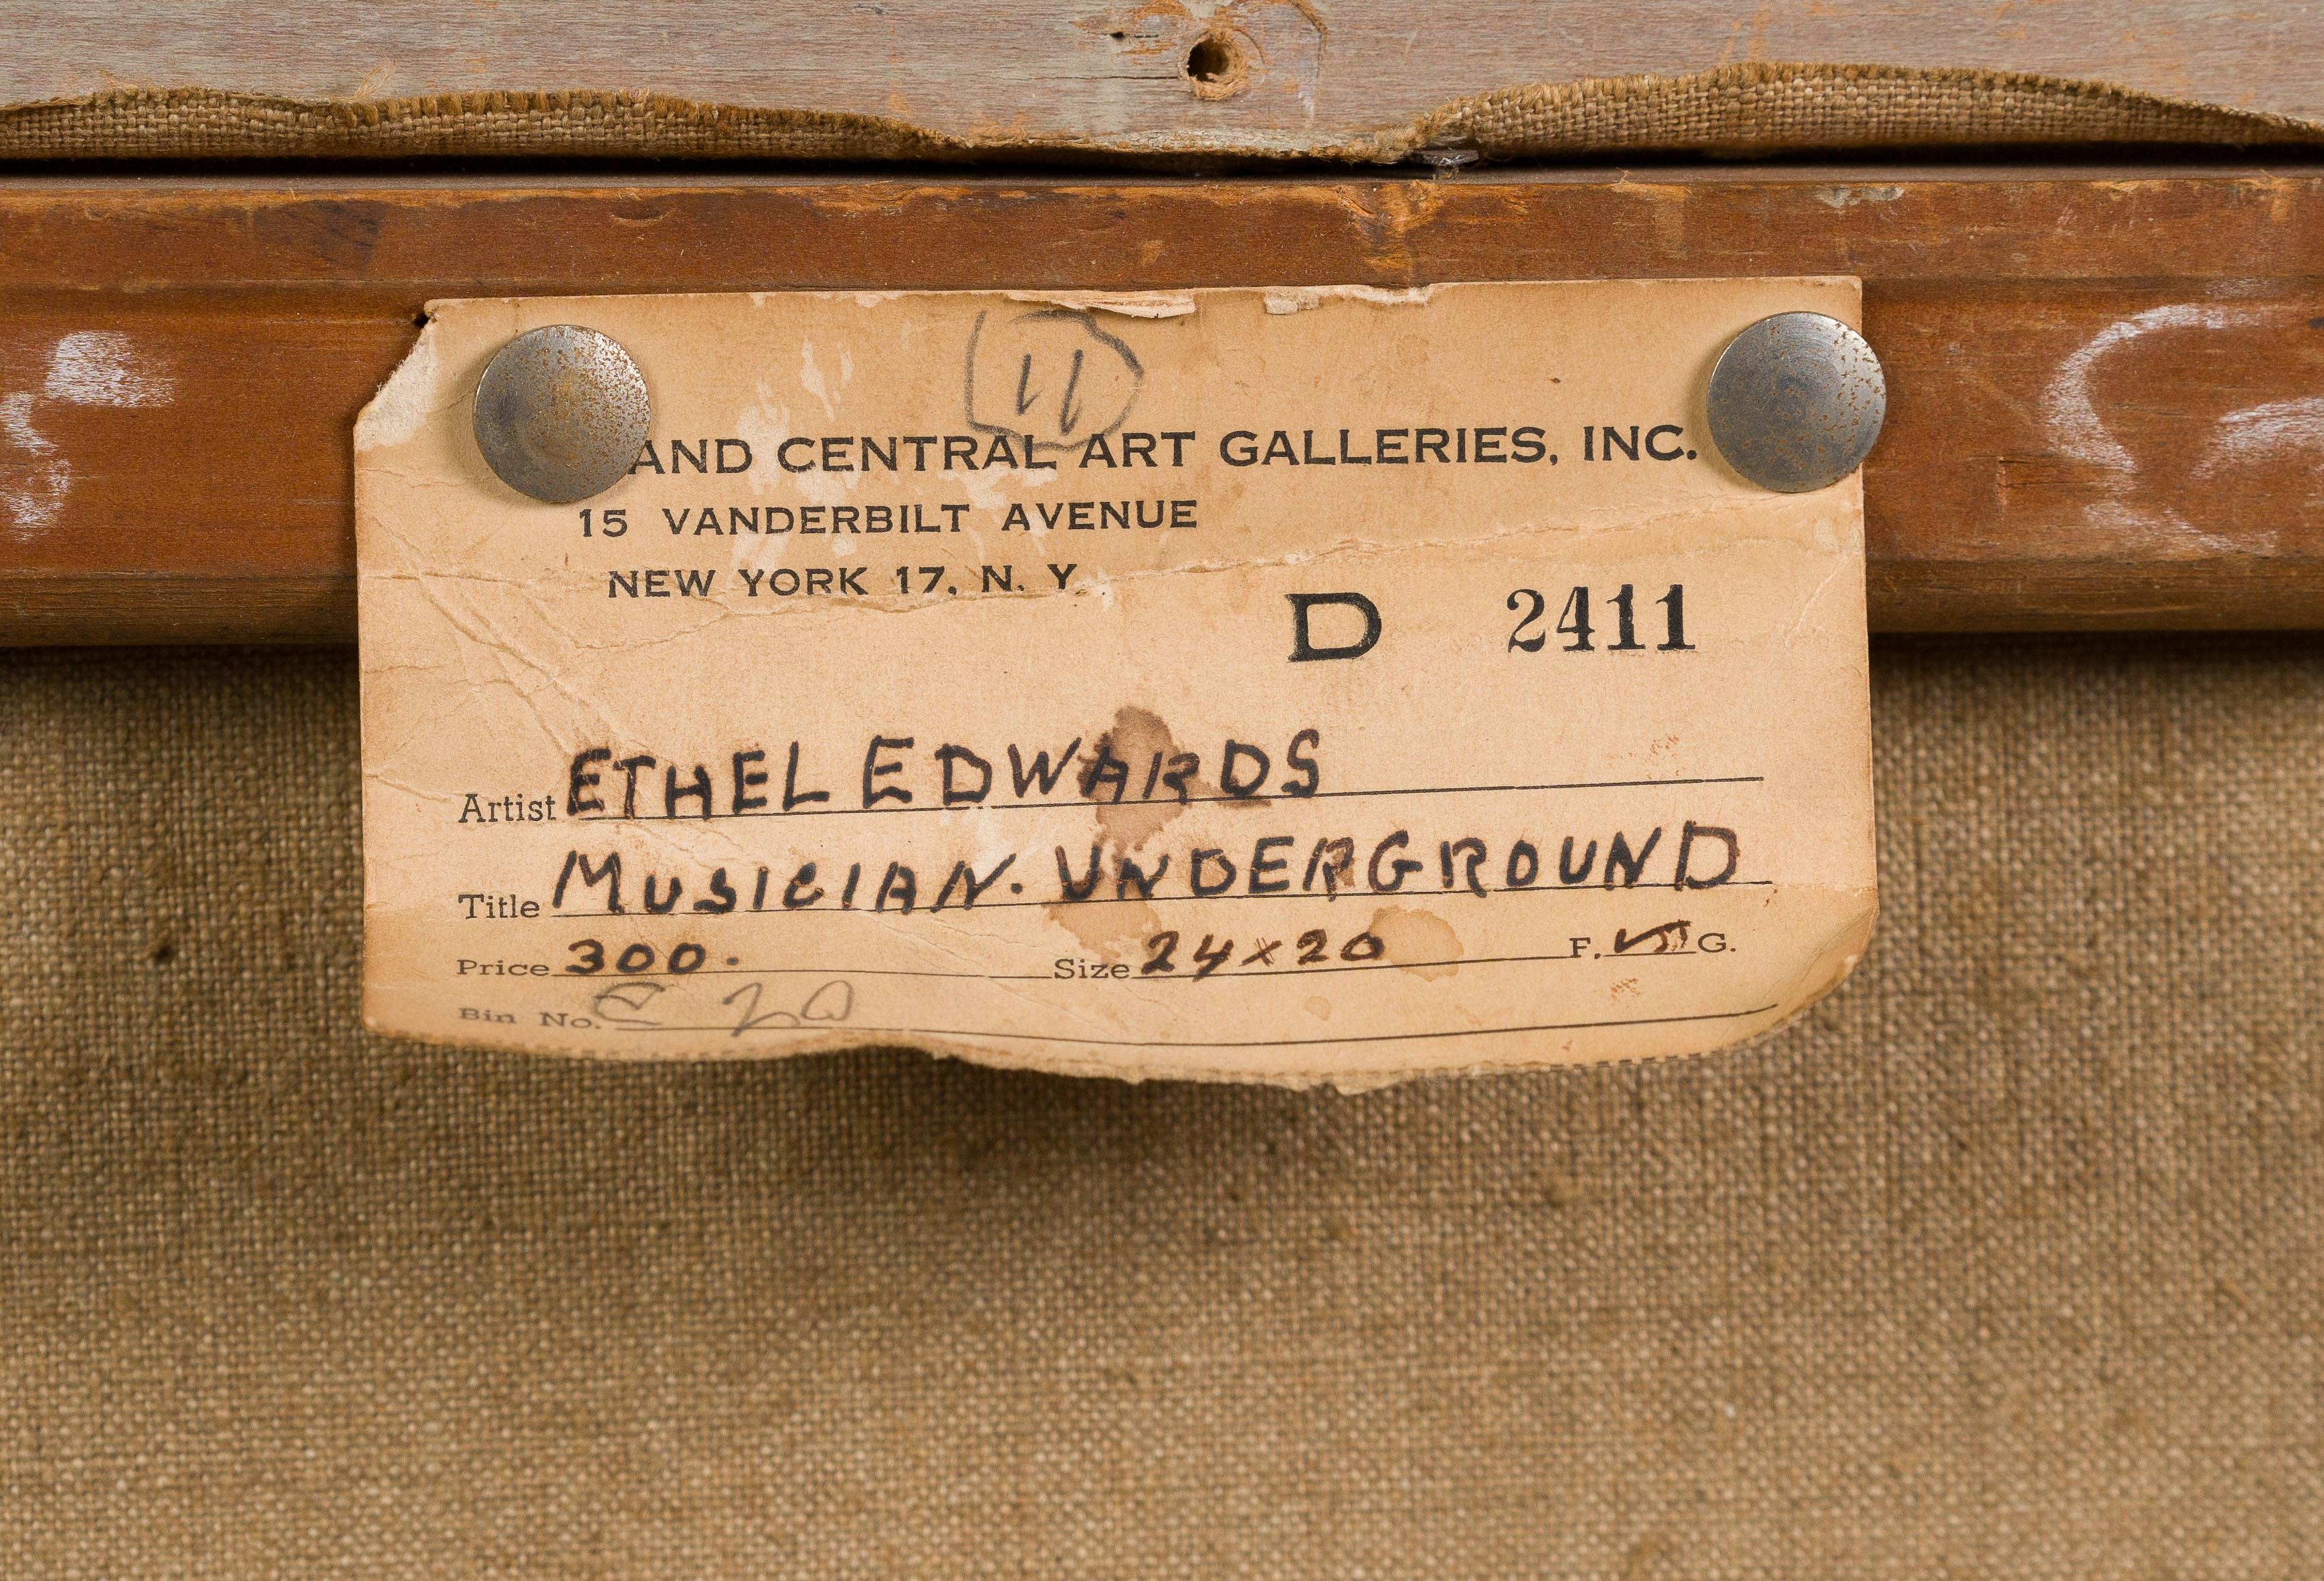 11
AND CENTRAL ART GALLERIES, INC.
15 VANDERBILT AVENUE
NEW YORK 17, N. Y.
D 2411
Artist ETHEL EDWARDS
Title MUSICIAN. UNDERGROUND
Price 300. Size 24x20 F. G.
Bin No. C 20